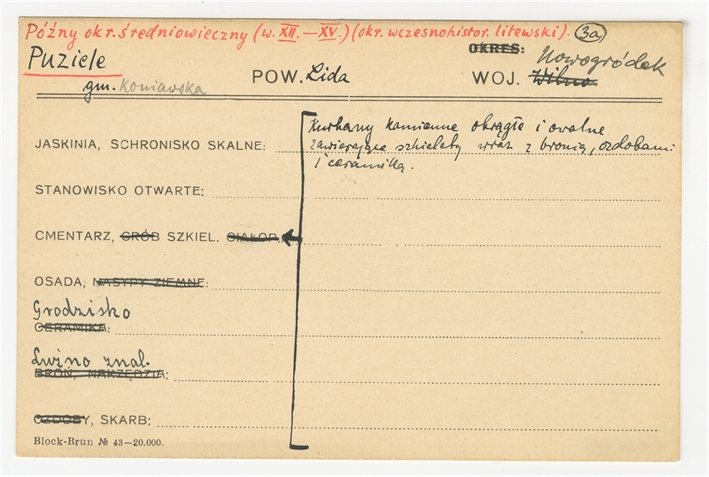 Późny okr. średniowieczny (w. XII.—XV.) (okr. wczesnohistor. litewski). 3a
Puziele
OKRES: Nowogródek
gm. Koniawska POW. Lida WOJ. Wilno
Kurhany kamienne okrągłe i owalne
JASKINIA, SCHRONISKO SKALNE: zawierające szkielety wraz z bronią, ozdobami
i ceramiką.
STANOWISKO OTWARTE:
CMENTARZ, GRÓB SZKIEL. CIAŁOP.
OSADA, NASYPY ZIEMNE:
Grodzisko
CERAMIKA:
Luźno znal.
BROŃ, NARZĘDZIA:
OZDOBY, SKARB:
Block-Brun № 43—20.000.